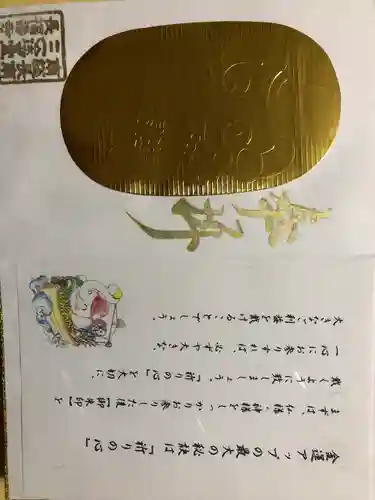 奉拝
金運アップの最大の秘訣は「祈りの心」
まずは、仏様・神様をしっかりお参りした後【御朱印】を
戴くように致しましょう。「祈りの心」を大切に、
一心にお参りすれば、必ずや大きな、
大きなご利益を戴けることでしょう。